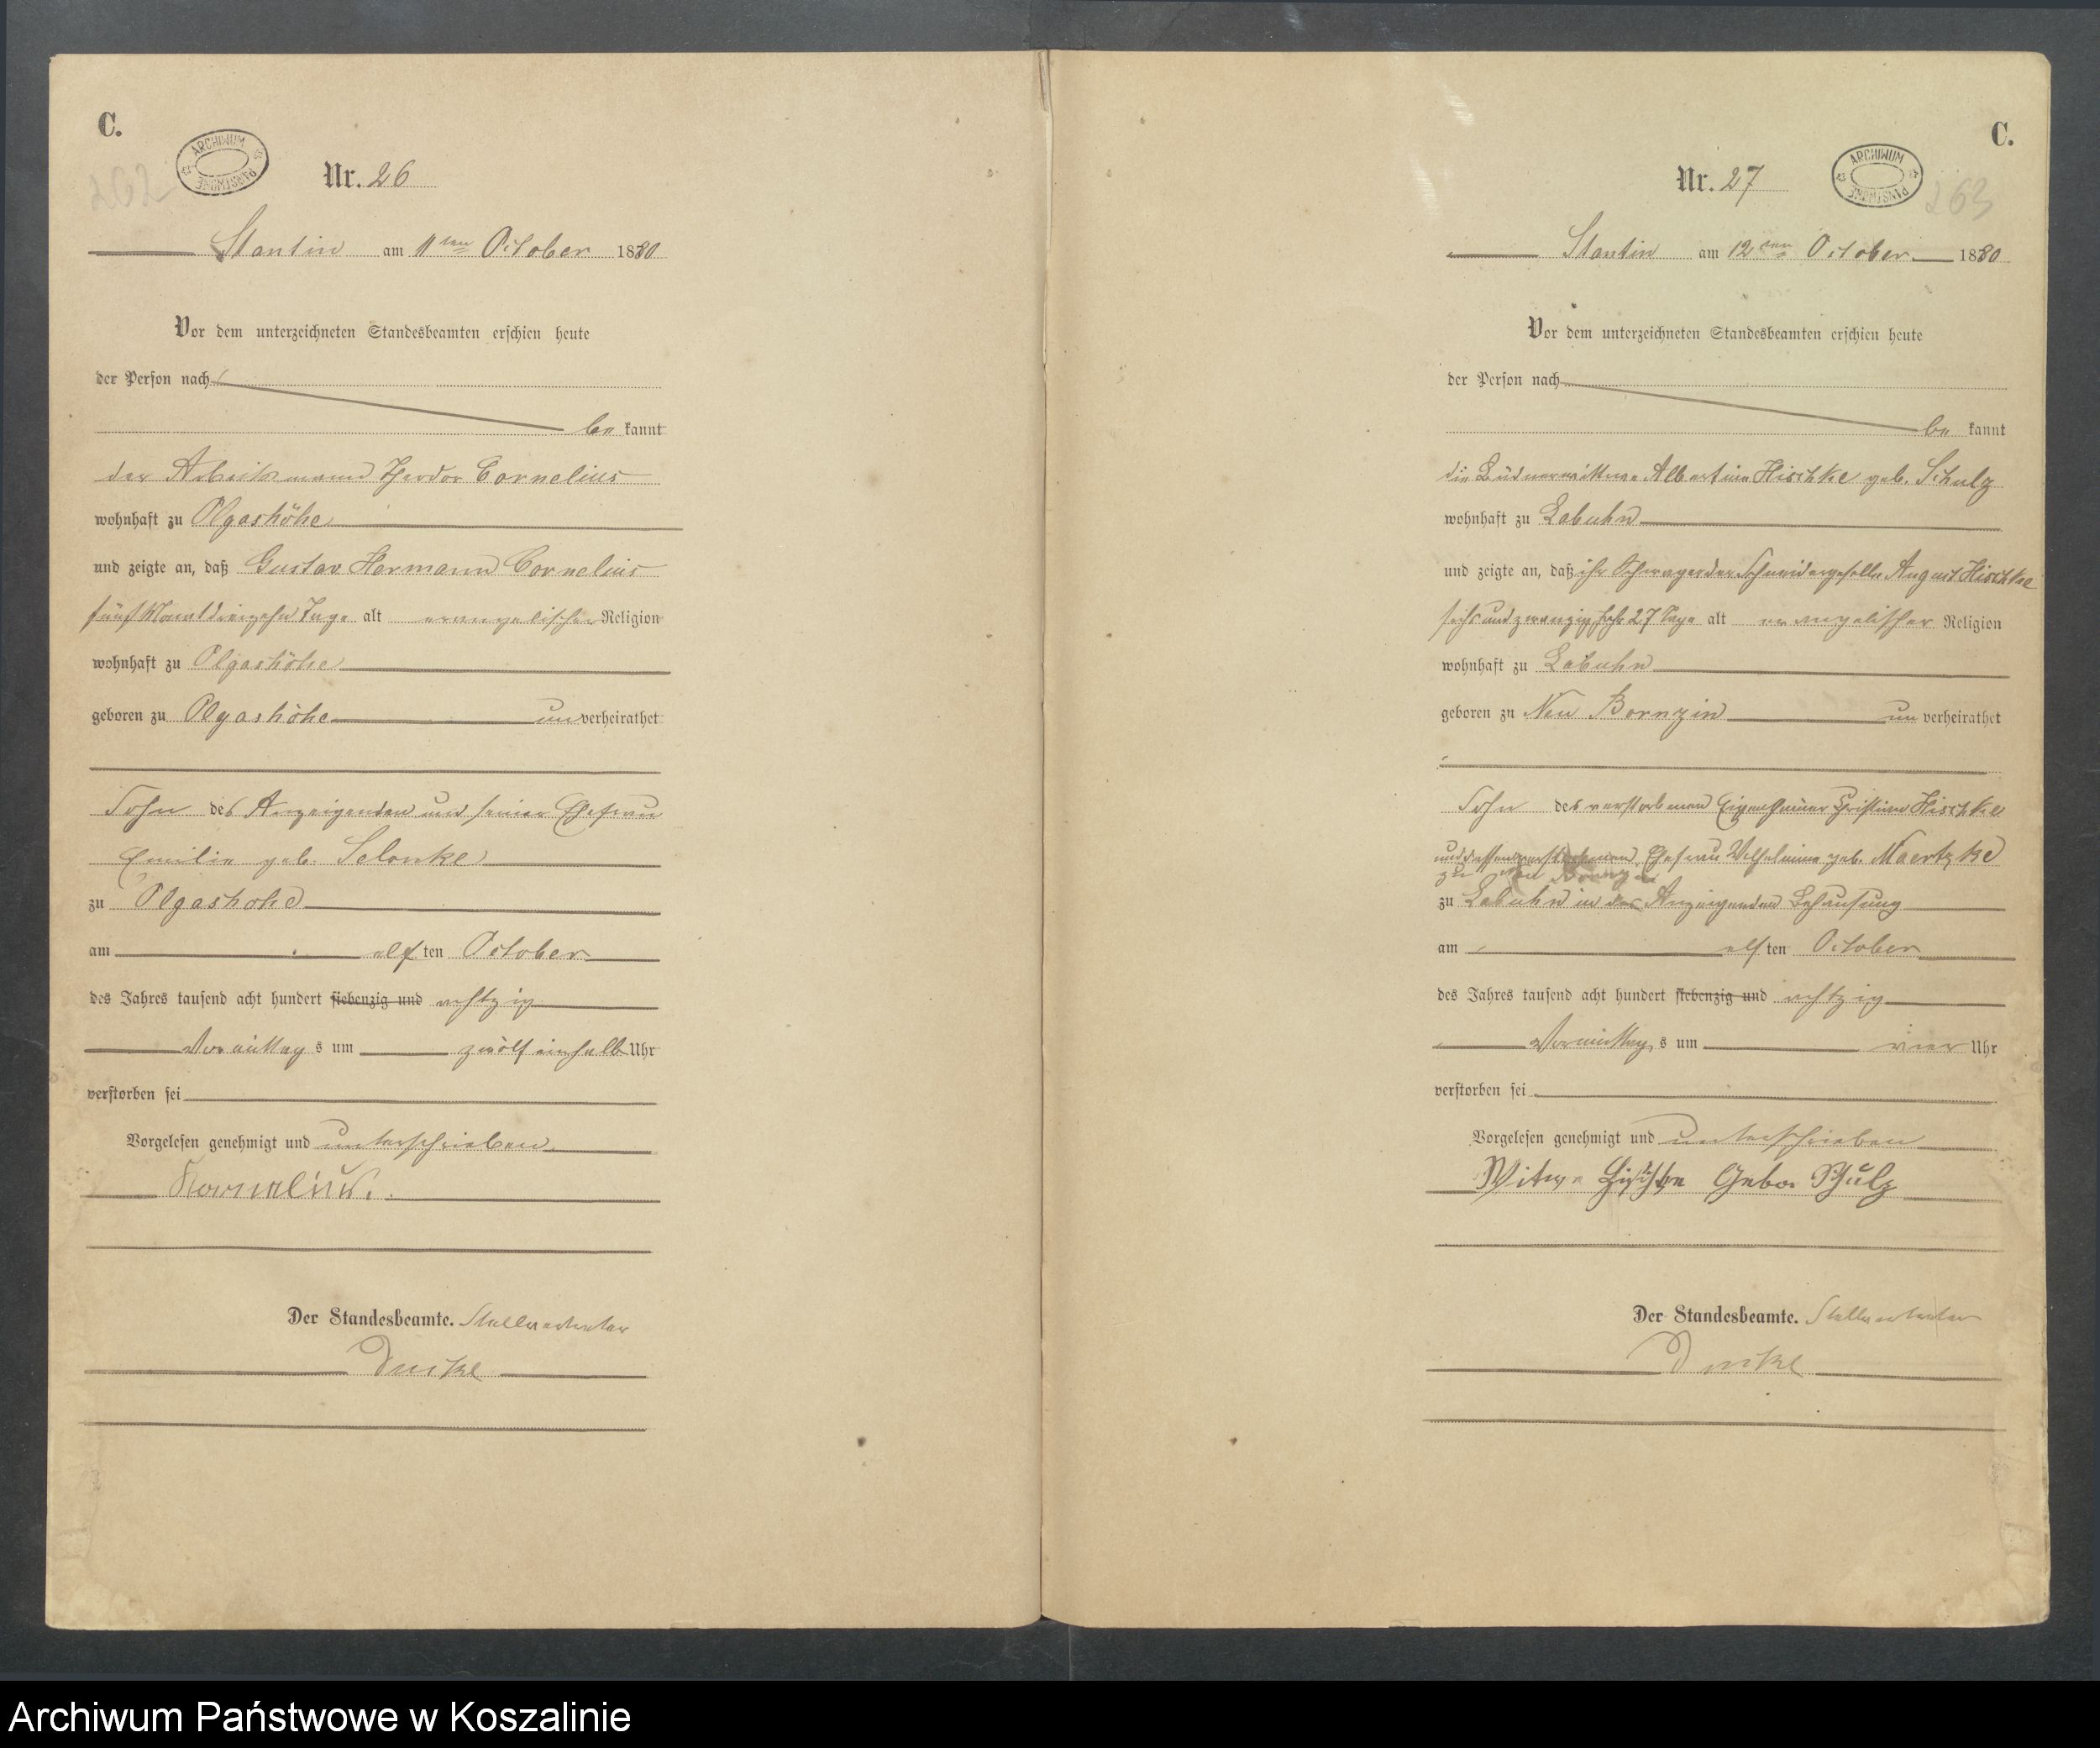 C.
ARCHIWUM PAŃSTWOWE
262
Nr. 26
Stantin am 11ten October 1880
Vor dem unterzeichneten Standesbeamten erschien heute
der Person nach
be kannt
der Arbeitsmann Theodor Cornelius
wohnhaft zu Olgashöhe
und zeigte an, daß Gustav Hermann Cornelius
fünf Monat dreizehn Tage alt evangelischer Religion
wohnhaft zu Olgashöhe
geboren zu Olgashöhe unverheirathet
Sohn des Anzeigenden und seiner Ehefrau
Emilie geb. Selonke
zu Olgashöhe
am elften October
des Jahres tausend acht hundert siebenzig und achtzig
Vormittags um zwölf einhalb Uhr
verstorben sei
Vorgelesen genehmigt und unterschrieben
Kornelius.
Der Standesbeamte. Stellvertreter
C.
ARCHIWUM PAŃSTWOWE
263
Nr. 27
Stantin am 12ten October 1880
Vor dem unterzeichneten Standesbeamten erschien heute
der Person nach
be kannt
die Büdnerwittwe Albertine Hischke geb. Schulz
wohnhaft zu Labuhn
und zeigte an, daß ihr Schwager der Schneidergeselle August Hischke
sechs und zwanzig Jahr 27 Tage alt evangelischer Religion
wohnhaft zu Labuhn
geboren zu Neu Bornzin unverheirathet
Sohn des verstorbenen Eigenthümer Christian Hischke
und dessen verstorbenen Ehefrau Wilhelmine geb. Maertzke
zu Neu Bornzin
zu Labuhn in der Anzeigenden Behausung
am elften October
des Jahres tausend acht hundert siebenzig und achtzig
Vormittags um vier Uhr
verstorben sei
Vorgelesen genehmigt und unterschrieben
Witwe Hischke Gebor Schulz
Der Standesbeamte. Stellvertreter
Archiwum Państwowe w Koszalinie